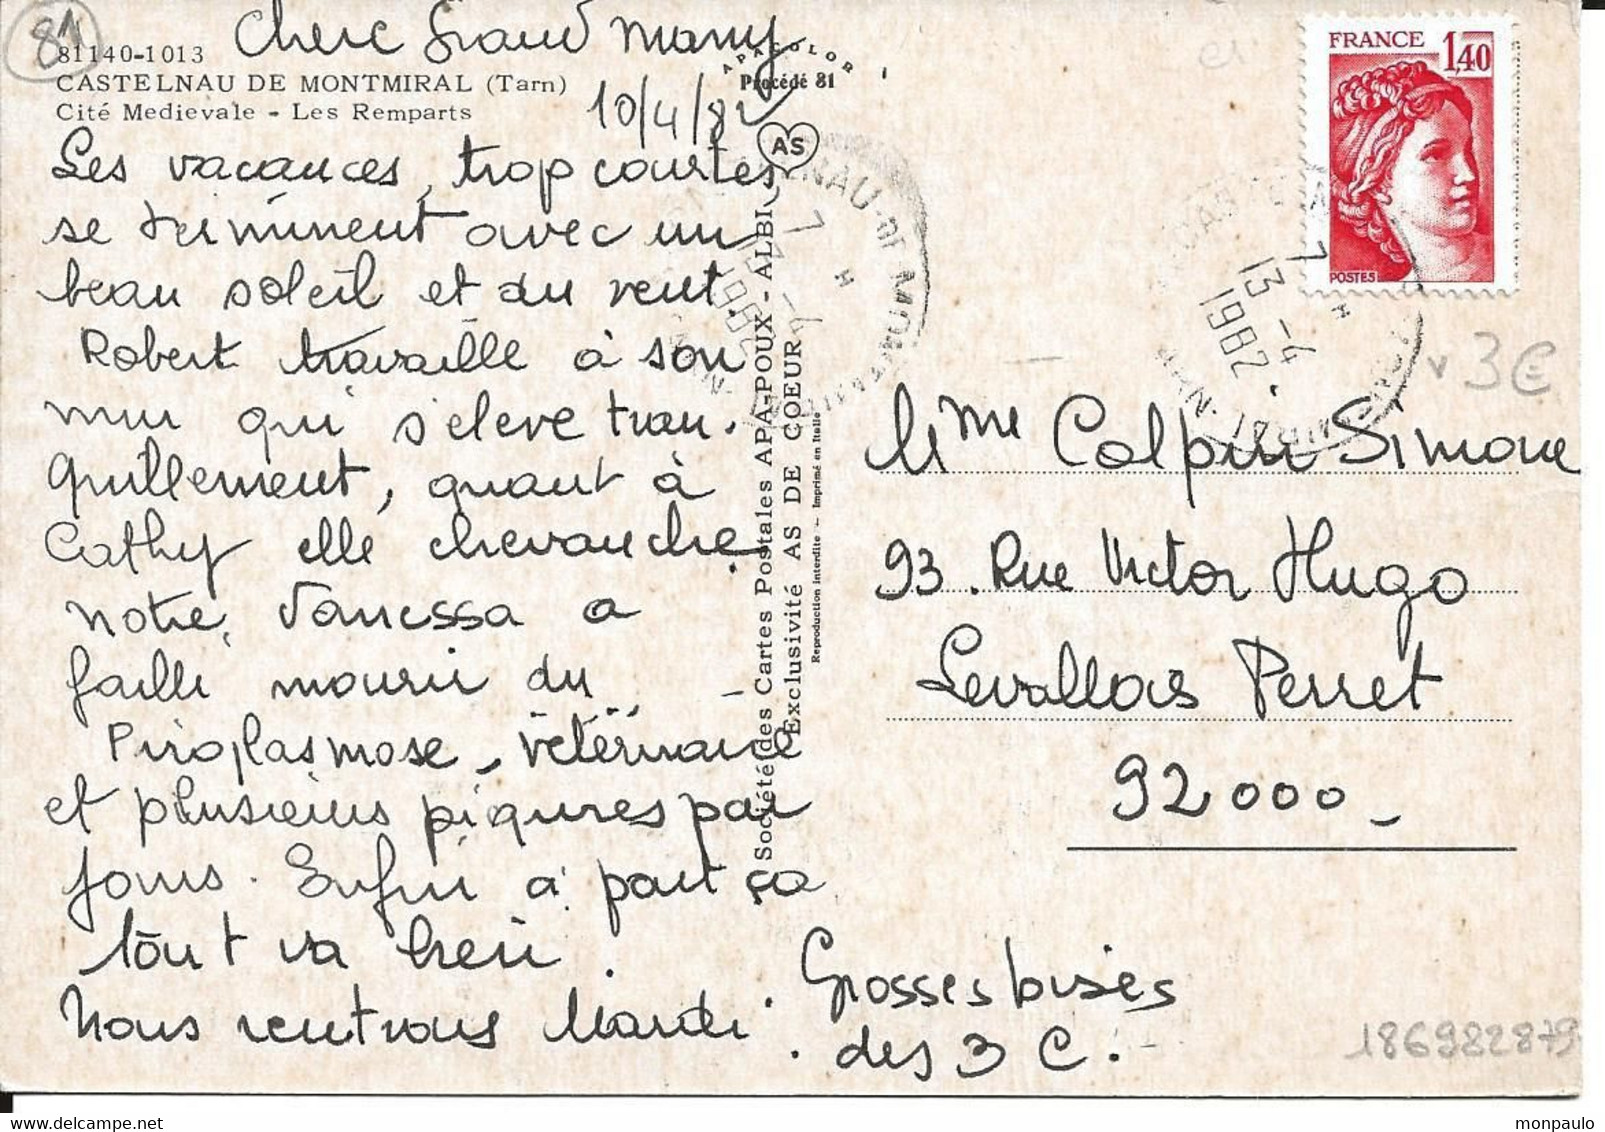 81
81140-1013
CASTELNAU DE MONTMIRAL (Tarn)
Cité Medievale - Les Remparts
APACOLOR
Procédé 81
AS
Chere Grand Mamy
10/4/82
Les vacances, trop courtes
se terminent avec un
beau soleil et du vent
Robert travaille à son
mur qui s'eleve tran.
quillement, quant à
Cathy elle chevauche.
notre Vanessa a
failli mourir du
Piroplasmose, véterinaire
et plusieurs piqures par
jours. Enfin à part ça
tout va bien.
Nous rentrons Mardi.
Grosses bises
des 3 C.
Société des Cartes Postales APA-POUX - ALBI
Exclusivité AS DE COEUR
Reproduction Interdite - Imprimé en Italie
FRANCE
1,40
POSTES
13-4
1982
v 3€
Mme Colpin Simone
93. Rue Victor Hugo
Levallois Perret
92000_
186982879
monpaulo